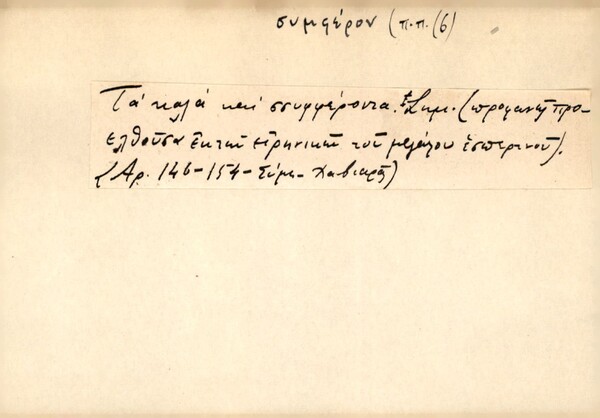 συμφέρον (π.π. (6)
Τά καλά καί συφφέροντα. Σημ. (προφανῶς προ-
ελθοῦσα ἐκ τῶν εἰρηνικῶν τοῦ μεγάλου ἑσπερινοῦ).
(Ἀρ. 146-154 - Σύμη - Χαβιαρᾶ)